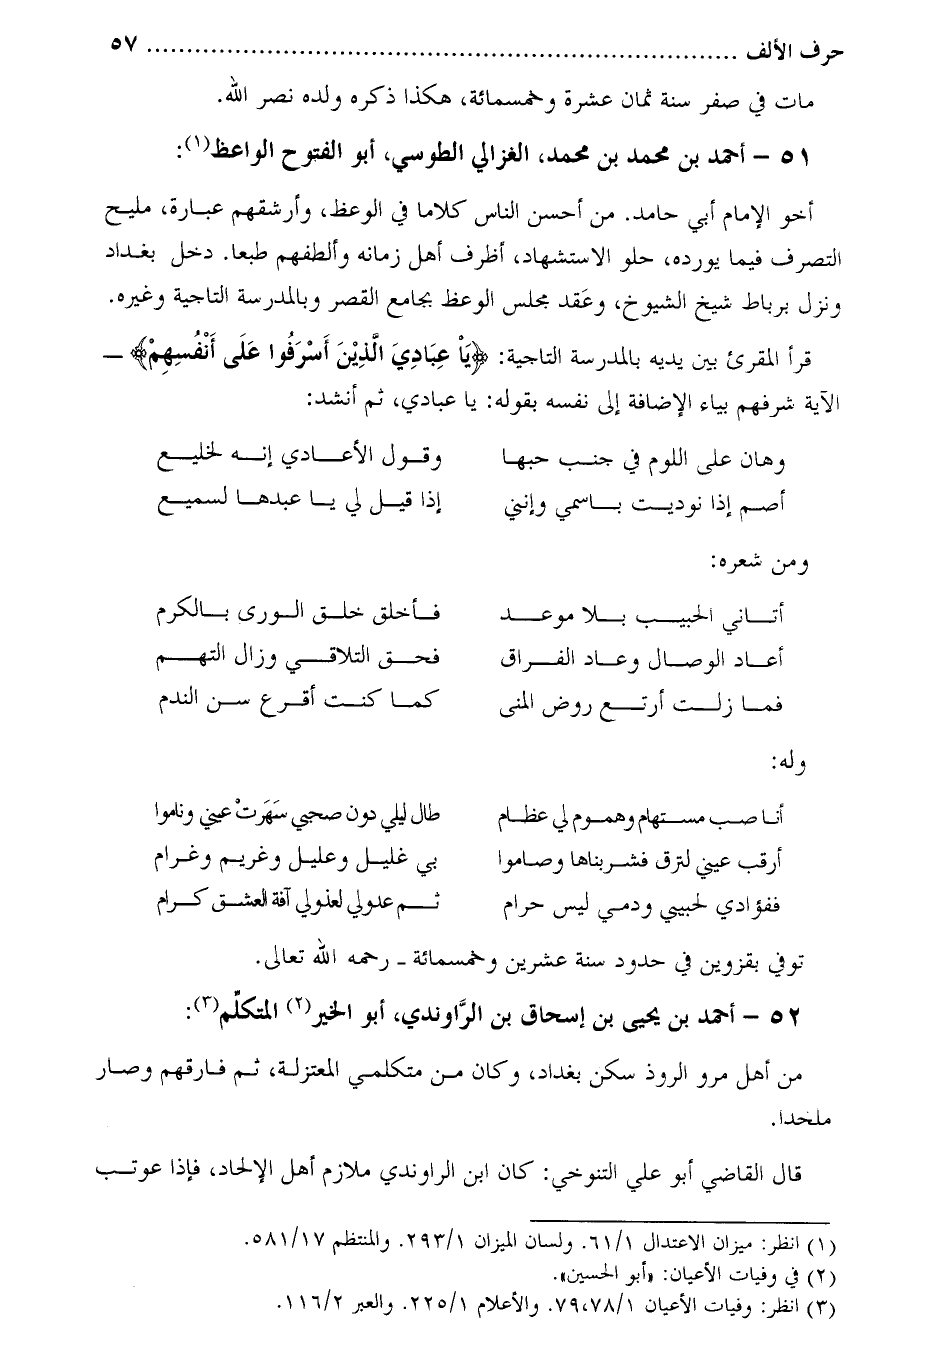 حرف الألف ........................................................................ ٥٧
مات في صفر سنة ثمان عشرة وخمسمائة، هكذا ذكره ولده نصر الله.
٥١ – أحمد بن محمد بن محمد، الغزالي الطوسي، أبو الفتوح الواعظ(١):
أخو الإمام أبي حامد. من أحسن الناس كلاما في الوعظ، وأرشقهم عبارة، مليح
التصرف فيما يورده، حلو الاستشهاد، أظرف أهل زمانه وألطفهم طبعا. دخل بغداد
ونزل برباط شيخ الشيوخ، وعَقد مجلس الوعظ بجامع القصر وبالمدرسة التاجية وغيره.
قرأ المقرئ بين يديه بالمدرسة التاجية: ﴿يَاْ عِبَادِيَ الَّذِيْنَ أَسْرَفُوا عَلَى أَنْفُسِهِمْ﴾ –
الآية شرفهم بياء الإضافة إلى نفسه بقوله: يا عبادي، ثم أنشد:
وهان على اللوم في جنب حبها وقول الأعادي إنه لخليع
أصم إذا نوديت باسمي وإنني إذا قيل لي يا عبدها لسميع
ومن شعره:
أتاني الحبيب بلا موعد فأخلق خلق الورى بالكرم
أعاد الوصال وعاد الفراق فحق التلاقي وزال التهم
فما زلت أرتع روض المنى كما كنت أقرع سن الندم
وله:
أنا صب مستهام وهموم لي عظام طال ليلي دون صحبي سَهَرَتْ عيني وناموا
أرقب عيني لترق فشربناها وصاموا بي غليل وعليل وغريم وغرام
ففؤادي لحبيبي ودمي ليس حرام ثم عدولي لعذولي آفة العشق كرام
توفي بقزوين في حدود سنة عشرين وخمسمائة ـ رحمه الله تعالى.
٥٢ – أحمد بن يحيى بن إسحاق بن الرَّاوندي، أبو الخير(٢) المتكلّم(٣):
من أهل مرو الروذ سكن بغداد، وكان من متكلمي المعتزلة، ثم فارقهم وصار
ملحدا.
قال القاضي أبو علي التنوخي: كان ابن الراوندي ملازم أهل الإلحاد، فإذا عوتب
(١) انظر: ميزان الاعتدال ٦١/١. ولسان الميزان ٢٩٣/١. والمنتظم ٥٨١/١٧.
(٢) في وفيات الأعيان: «أبو الحسين».
(٣) انظر: وفيات الأعيان ٧٩،٧٨/١. والأعلام ٢٢٥/١. والعبر ١١٦/٢.